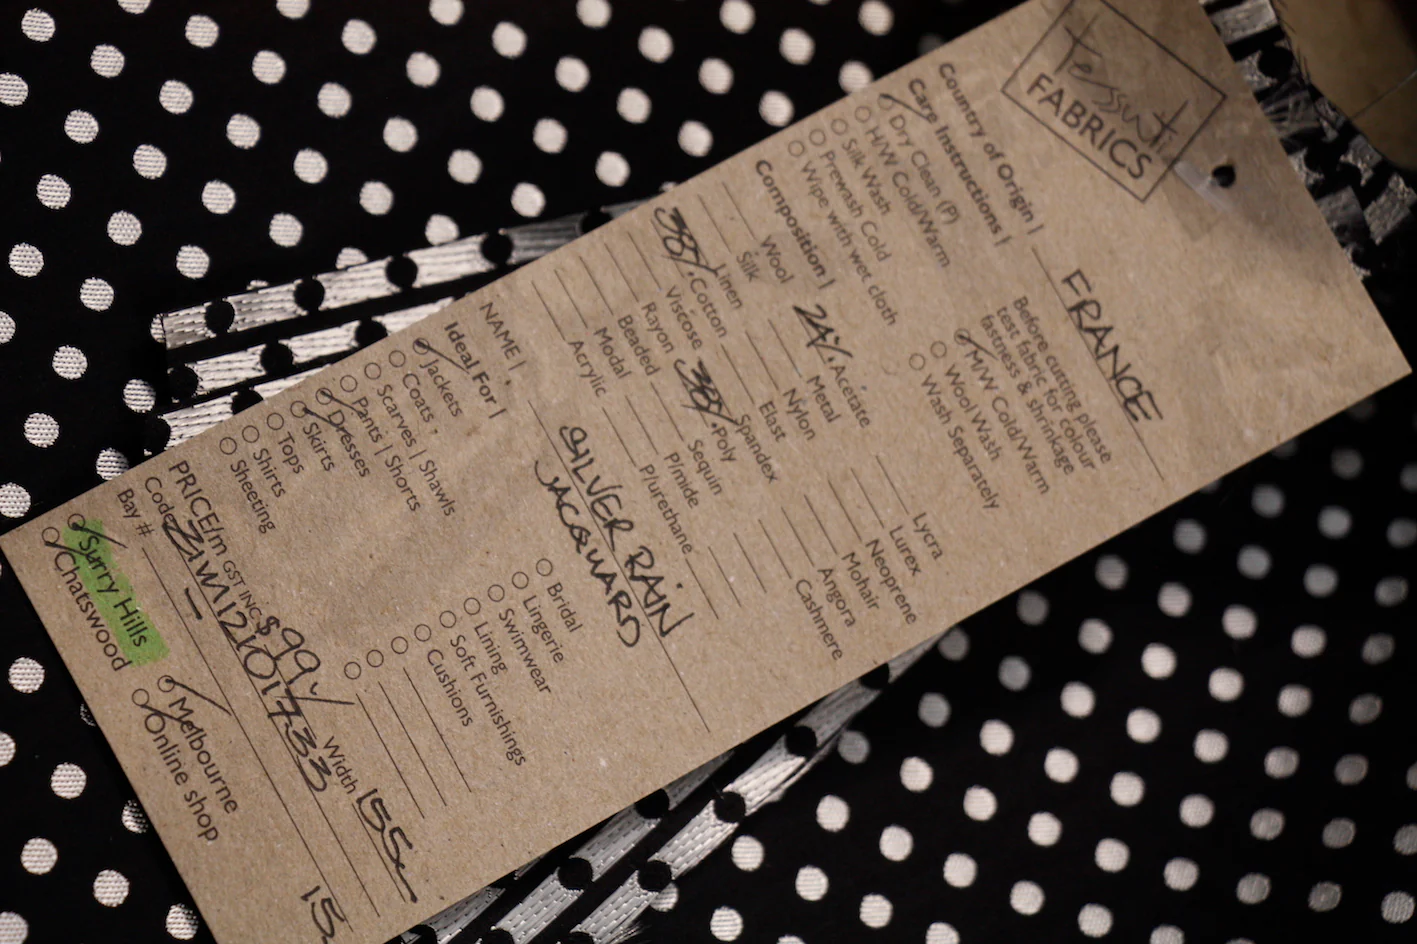 tessuti
FABRICS
Country of Origin | FRANCE
Care Instructions |
Dry Clean (P)
H/W Cold/Warm
Silk Wash
Prewash Cold
Wipe with wet cloth
Before cutting please
test fabric for colour
fastness & shrinkage
M/W Cold/Warm
Wool Wash
Wash Separately
Composition |
Wool
Silk
Linen
38% Cotton
Viscose
Rayon
Beaded
Modal
Acrylic
24% Acetate
Metal
Nylon
Elast
Spandex
38% Poly
Sequin
P/mide
P/urethane
Lycra
Lurex
Neoprene
Mohair
Angora
Cashmere
NAME | SILVER RAIN
JACQUARD
Ideal For |
Jackets
Coats
Scarves | Shawls
Pants | Shorts
Dresses
Skirts
Tops
Shirts
Sheeting
Bridal
Lingerie
Swimwear
Lining
Soft Furnishings
Cushions
PRICE/m GST INC $99 Width 155
Code
Bay #
Surry Hills
Chatswood
Melbourne
Online shop